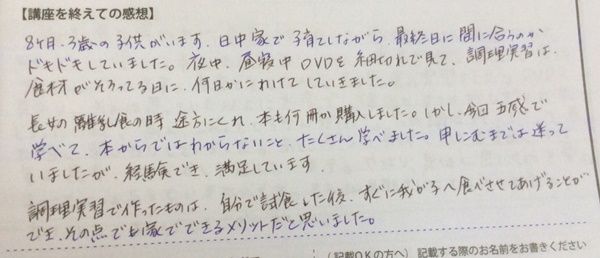 【講座を終えての感想】
8ヶ月、3歳の子供がいます。日中家で子育てしながら、最終日に間に合うのか
ドキドキしていました。夜中、昼寝中DVDを細切れで見て、調理実習は、
食材がそろってる日に、何日かにわけていきました。
長女の離乳食の時 途方にくれ、本も何冊か購入しました。しかし、今回五感で
学べて、本からではわからないこと、たくさん学べました。申しこむまでは迷って
いましたが、経験でき、満足しています
調理実習で作ったものは、自分で試食した後、すぐに我が子へ食べさせてあげることが
でき、その点でも家でできるメリットだと思いました。
(記載OKの方へ) 記載する際のお名前をお書きください